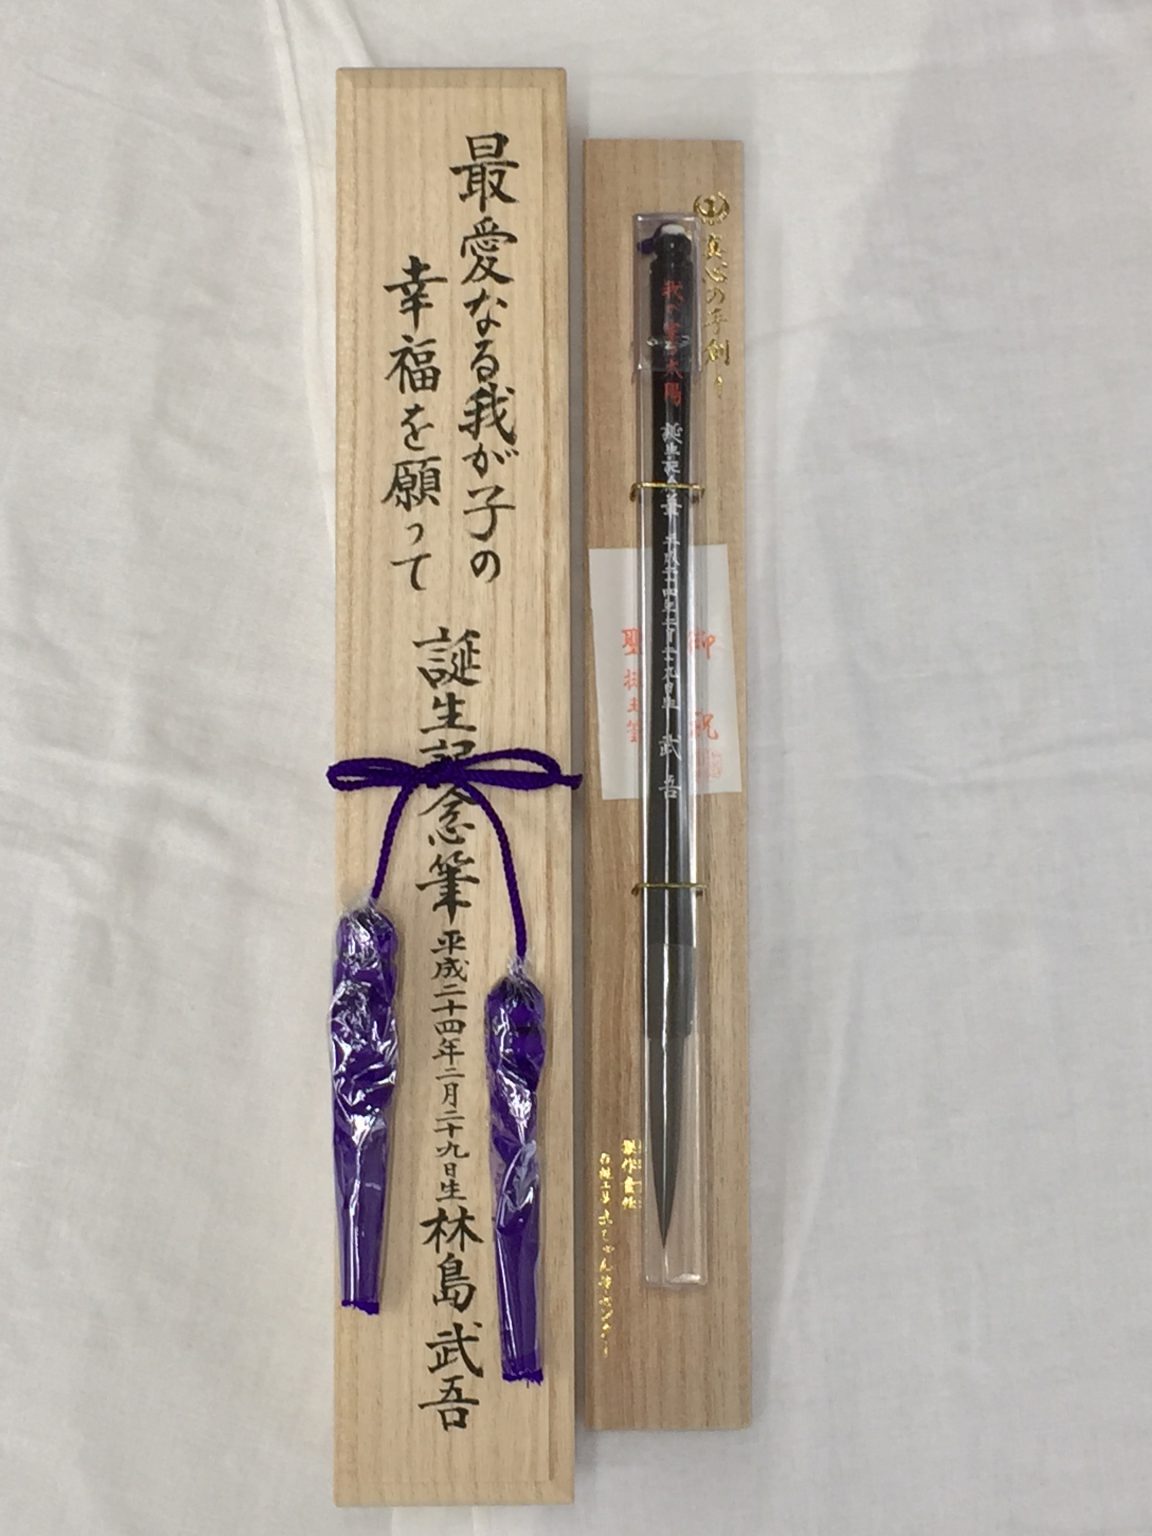 最愛なる我が子の
幸福を願って
誕生記念筆 平成二十四年二月二十九日生 林島 武吾
真心の手創り
我が家の太陽 誕生記念筆 平成二十四年二月二十九日生 武吾
御祝
製作責任